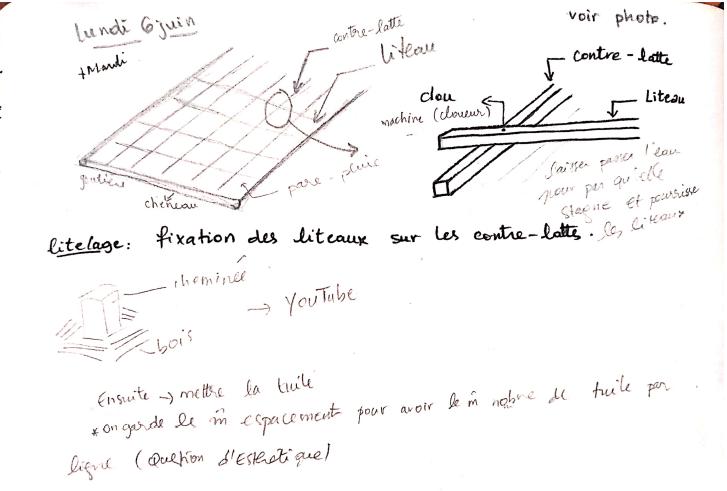 Lundi 6 juin
+ Mardi
voir photo.
contre-latte
liteau
contre-latte
clou
machine (cloueur)
Liteau
pare-pluie
gouttière
chêneau
laisser passer l'eau
pour pas qu'elle
stagne et pourrisse
les liteaux
litelage : fixation des liteaux sur les contre-lattes.
cheminée
→ YouTube
bois
Ensuite → mettre la tuile
* on garde le m̂ espacement pour avoir le m̂ nobre de tuile par
ligne (Question d'Esthétique)